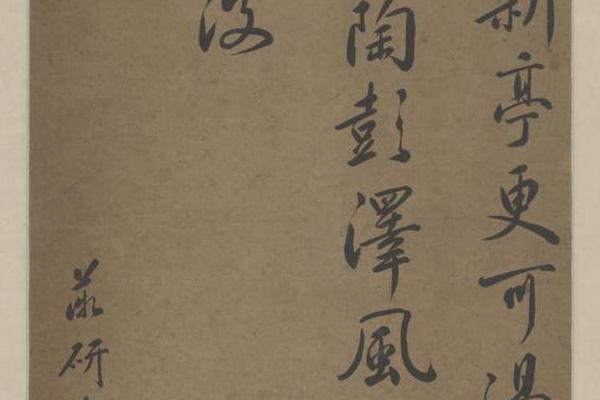 新亭更可
陶彭澤風
波
研